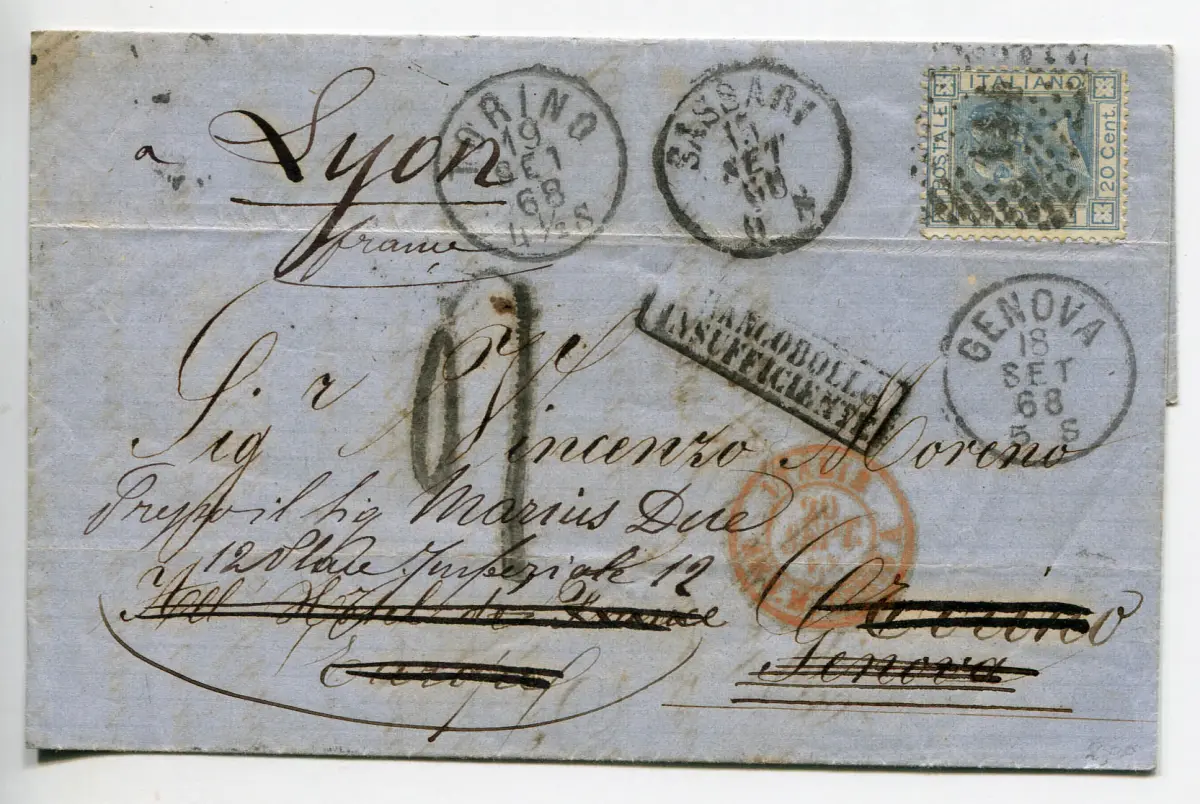 a Lyon
france
TORINO
19
SET
68
4½ S
SASSARI
SET
68
POSTALE
ITALIANO
20 Cent.
GENOVA
18
SET
68
5 S
FRANCOBOLLO
INSUFFICIENTE
Sig r Vincenzo Moreno
il Sig Marius Due
12 Place Imperiale 12
Hotel de France
Torino
Genova
20